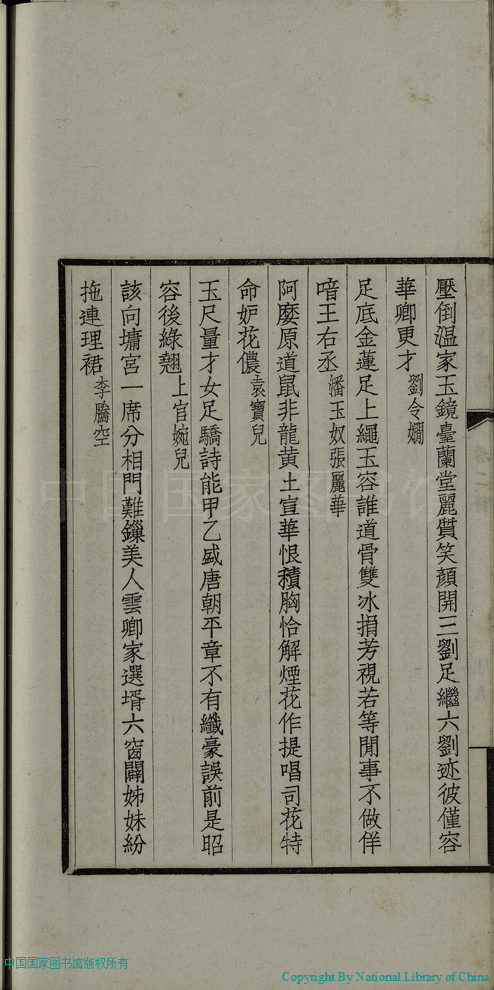 壓倒溫家玉鏡臺蘭堂麗質笑顏開三劉足繼六劉迹彼僅容
華卿更才劉令嫺
足底金蓮足上繩玉容誰道骨雙冰捐芳視若等閒事不做佯
喑王右丞潘玉奴張麗華
阿㜷原道鼠非龍黃土宣華恨積胸恰解煙花作提唱司花特
命妒花儂袁寶兒
玉尺量才女足驕詩能甲乙盛唐朝平章不有纖豪誤前是昭
容後綠翹上官婉兒
該向墉宮一席分相門難鏁美人雲卿家選壻六窗闢姊妹紛
拖連理裙李騰空
中国国家图书馆版权所有
Copyright By National Library of China